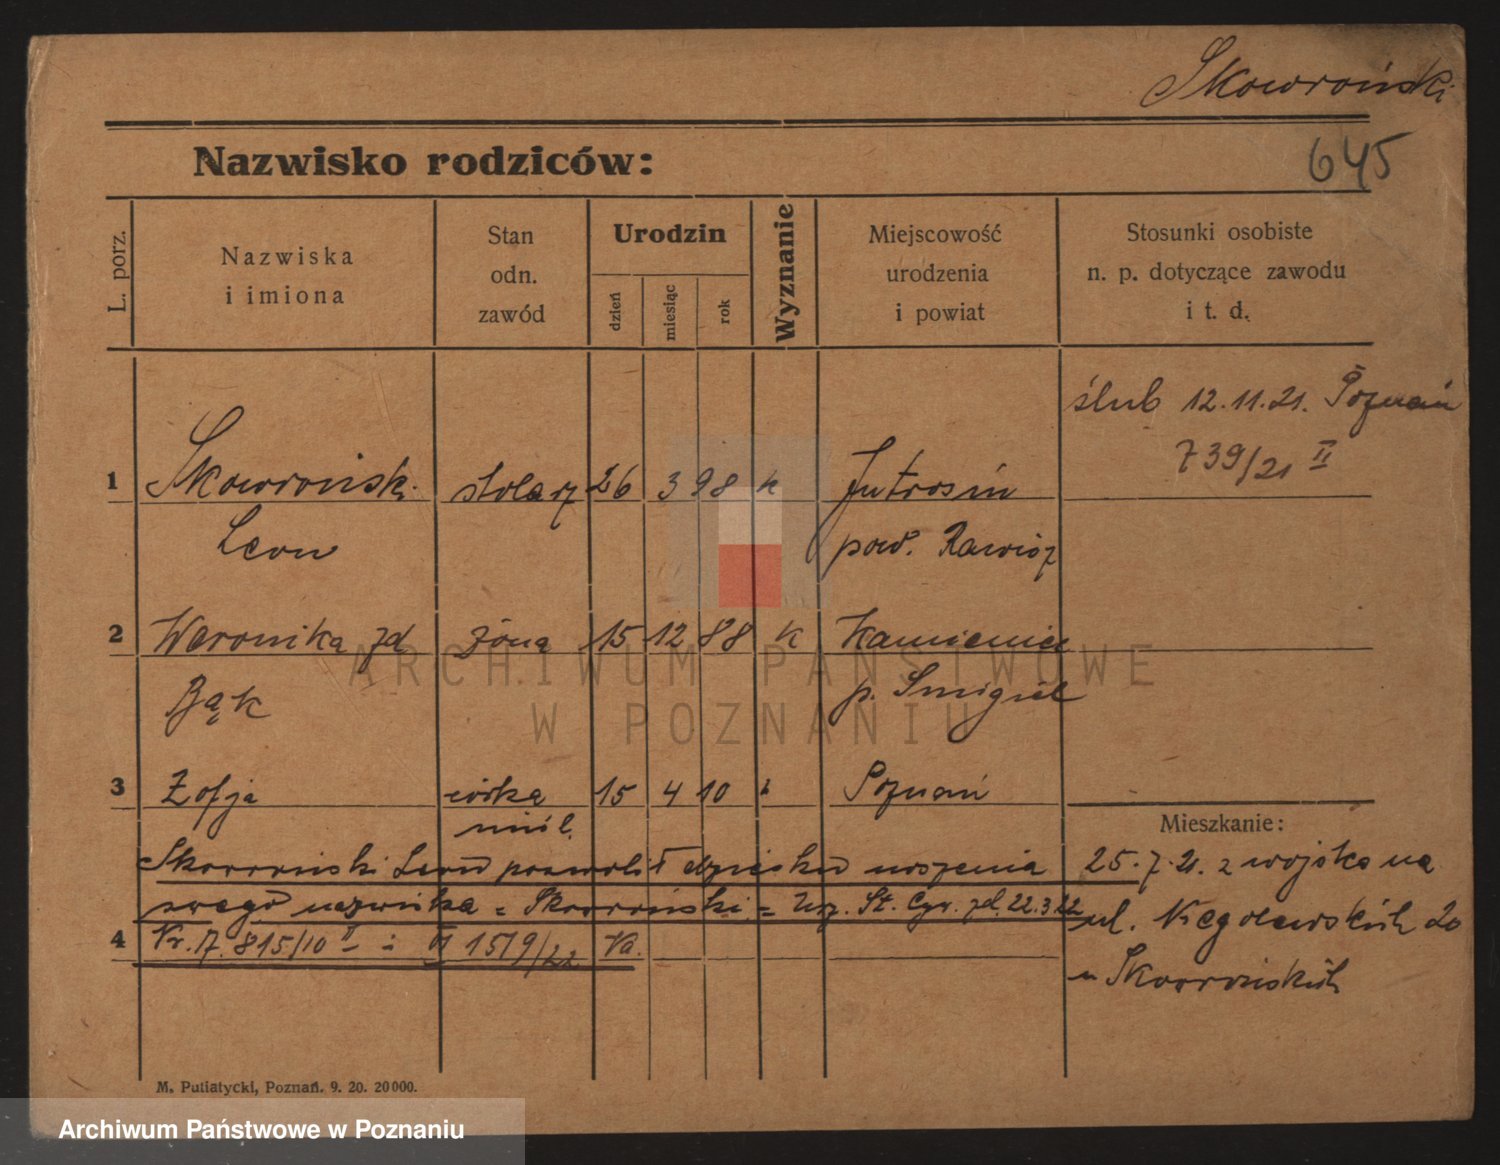 Skowroński
645
Nazwisko rodziców:
L. porz.
Nazwiska
i imiona
Stan
odn.
zawód
Urodzin
dzień
miesiąc
rok
Wyznanie
Miejscowość
urodzenia
i powiat
Stosunki osobiste
n. p. dotyczące zawodu
i t. d.
ślub 12.11.21. Poznań
739/21 II
1 Skowroński stolarz 26 3 98 k Jutrosin
Leon pow. Rawicz
2 Weronika zd żona 15 12 88 k Kamieniec
Bąk p. Śmigiel
3 Zofja córka 15 4 10 Poznań
nieśl.
Mieszkanie:
Skowroński Leon pozwolił dziecku noszenia
swego nazwiska = Skowroński = Urz. St. Cyw. zd. 22.3.22
4 Nr. 815/10 1519/22 Ka.
25.7.21. z wojska na
ul. Niegolewskich 20
u Skowrońskich
M. Putiatycki, Poznań. 9. 20. 20000.
ARCHIWUM PAŃSTWOWE
W POZNANIU
Archiwum Państwowe w Poznaniu